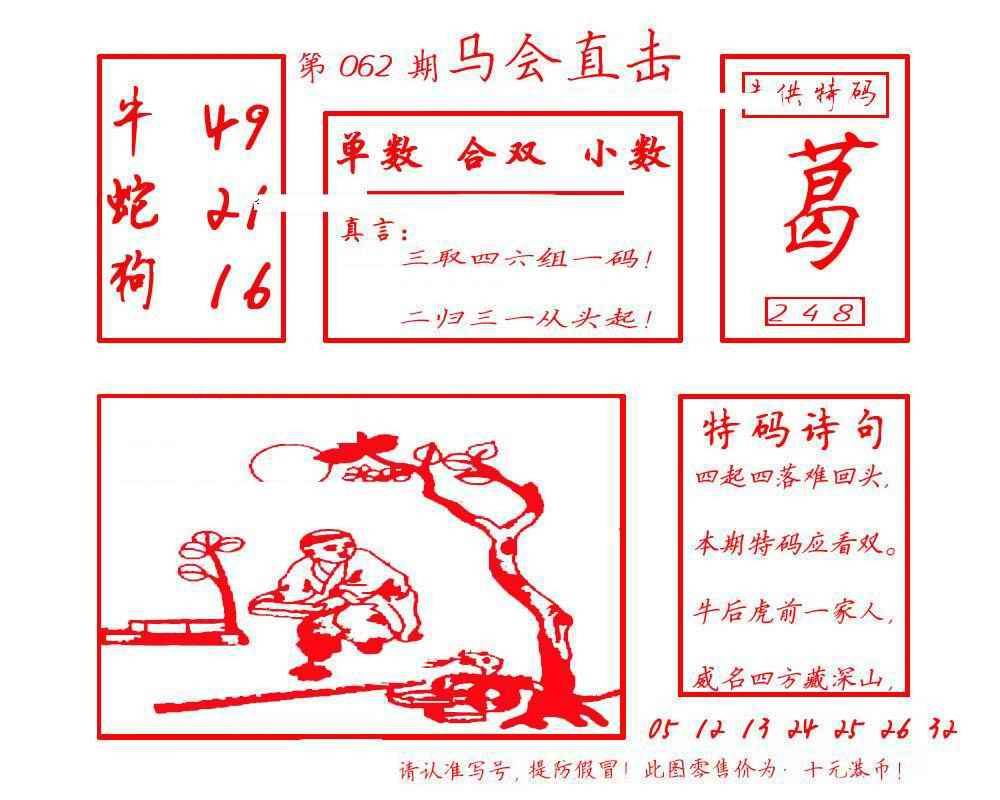 第 062 期 马会直击
牛 49
蛇 21
狗 16
单数 合双 小数
真言:
三取四六组一码!
二归三一从头起!
供特码
葛
248
特码诗句
四起四落难回头,
本期特码应看双。
牛后虎前一家人,
威名四方藏深山,
05 12 13 24 25 26 32
请认准写号,提防假冒!此图零售价为·十元港币!